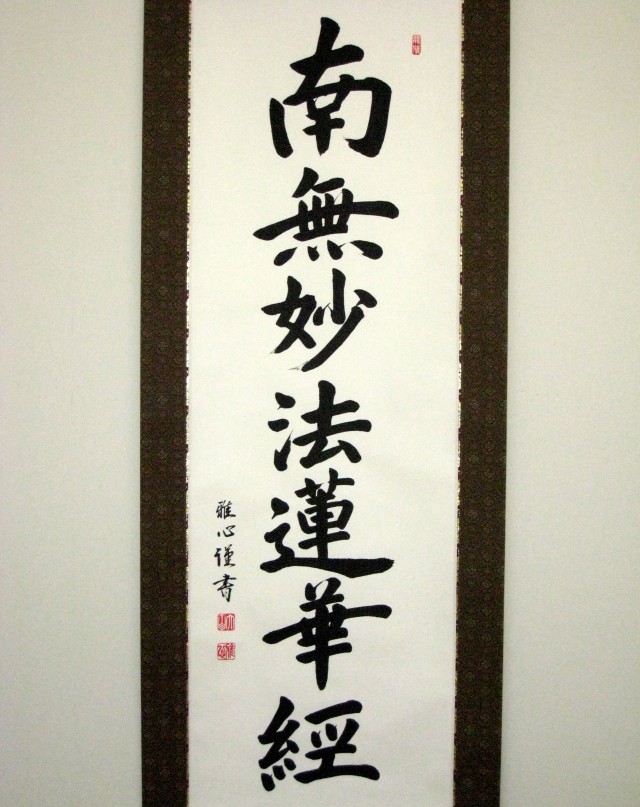 南無妙法蓮華經
雅心謹書